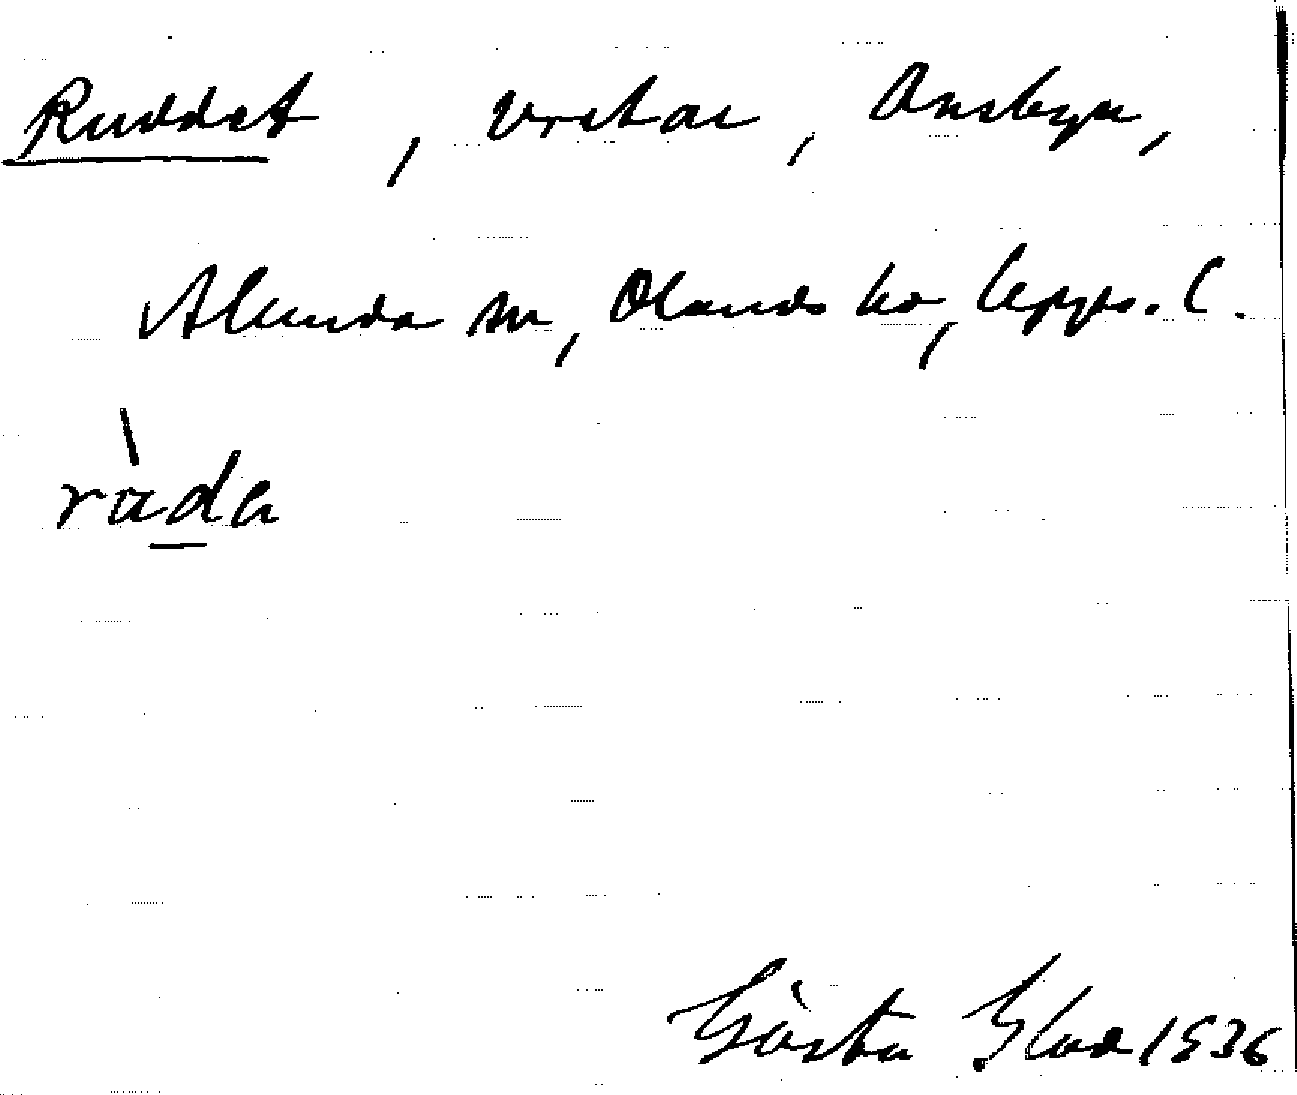 Ruddet, vretar, Ansbyn,
Alunda sn, Olands hd, Upps. l.
ràda
Gösta Glad 1936